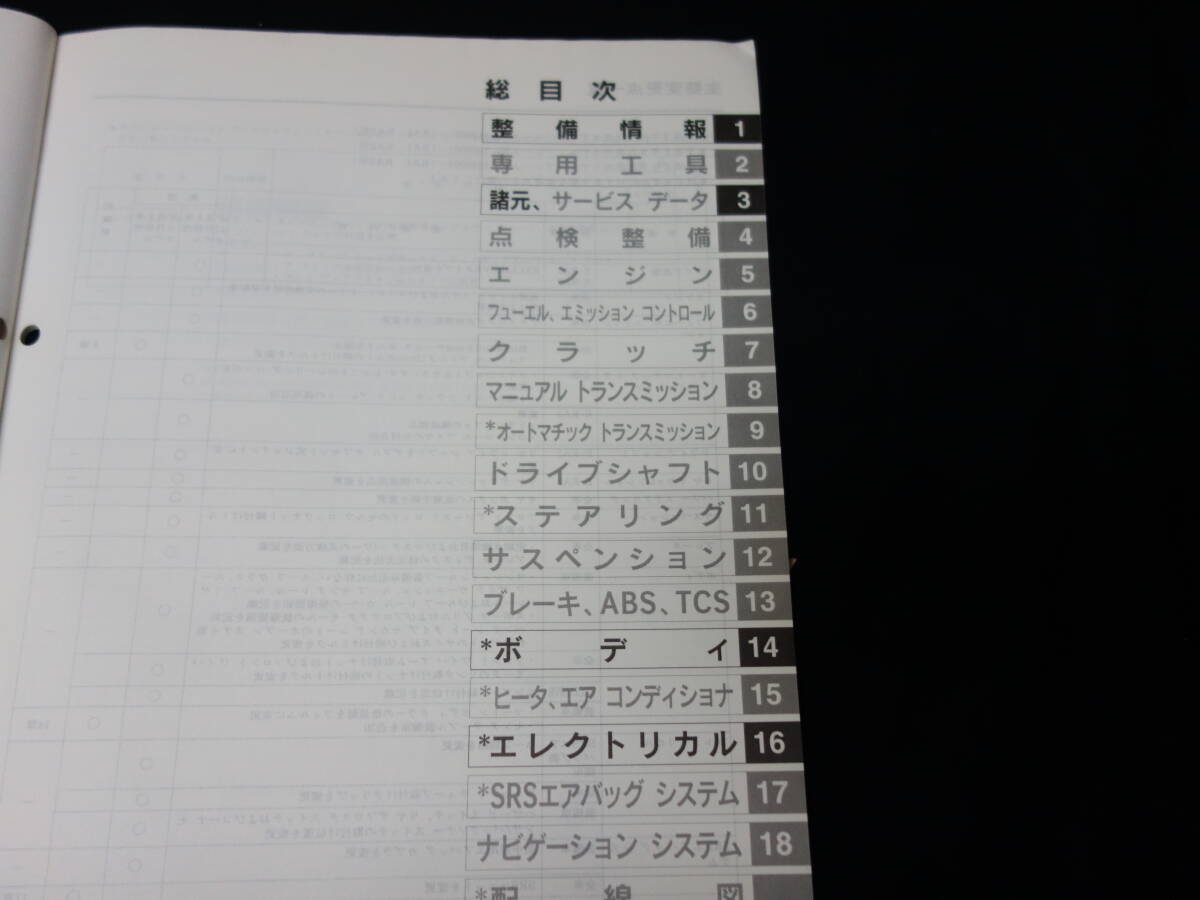 総目次
整備情報 1
専用工具 2
諸元、サービス データ 3
点検整備 4
エンジン 5
フューエル、エミッション コントロール 6
クラッチ 7
マニュアル トランスミッション 8
*オートマチック トランスミッション 9
ドライブシャフト 10
*ステアリング 11
サスペンション 12
ブレーキ、ABS、TCS 13
*ボディ 14
*ヒータ、エア コンディショナ 15
*エレクトリカル 16
*SRSエアバッグ システム 17
ナビゲーション システム 18
*配線図